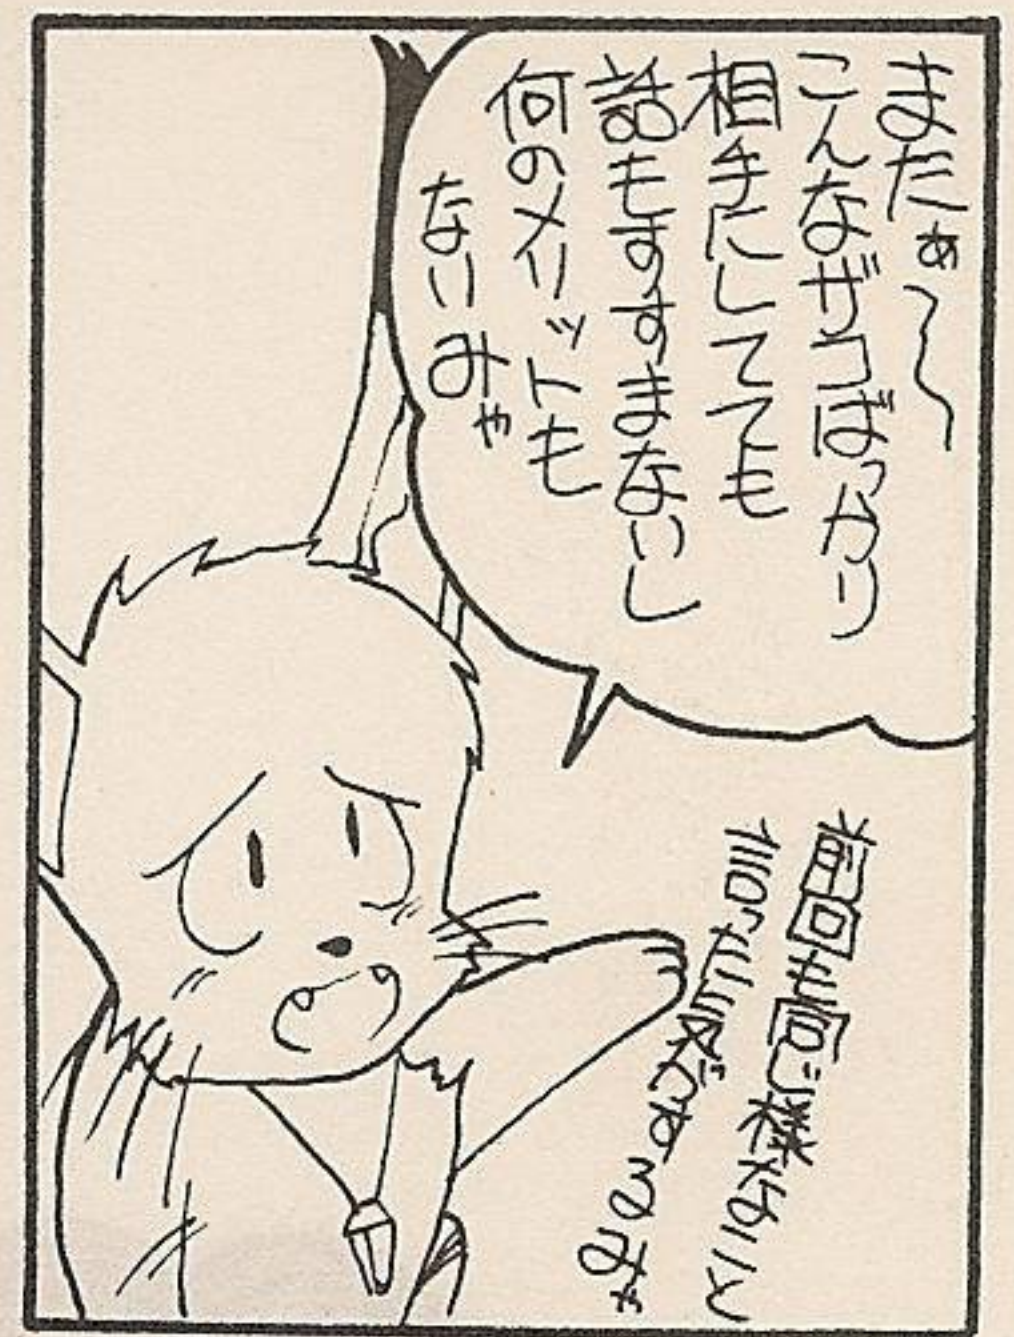 まだぁ～
こんなザコばっかり
相手にしてても
話もすすまないし
何のメリットも
ないみゃ
前回も同じ様なこと
言った気がするみゃ